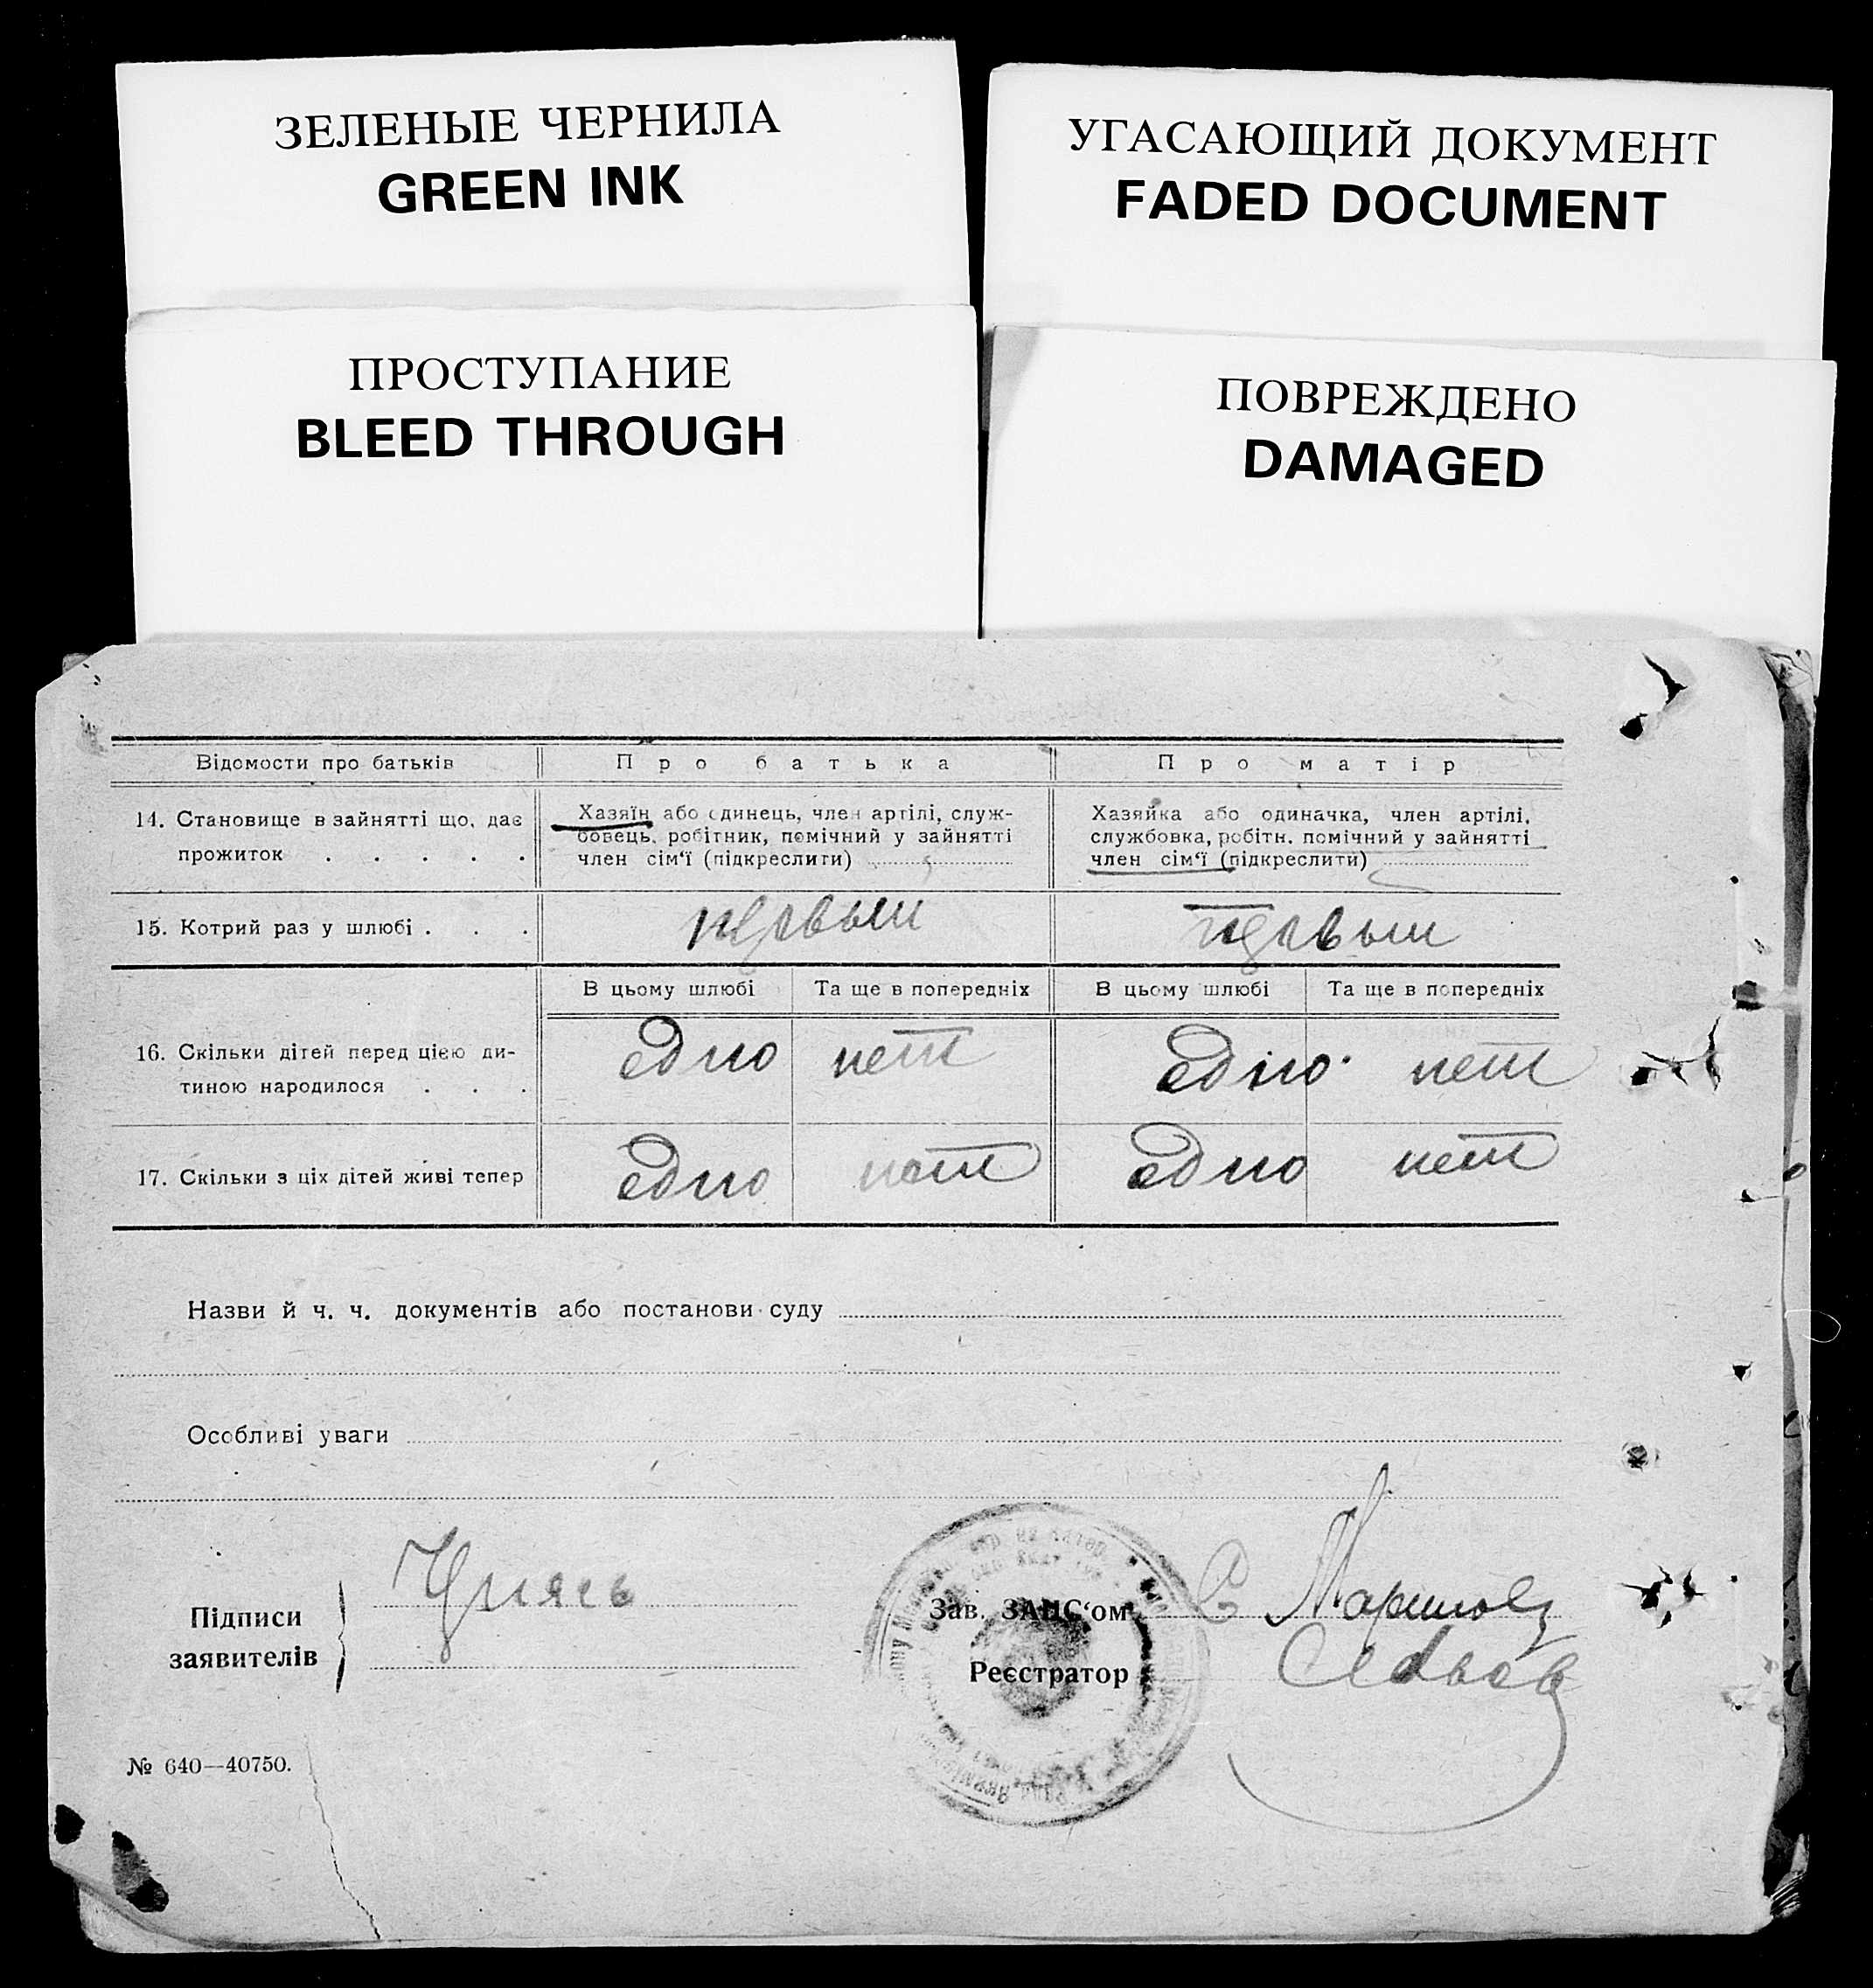 ЗЕЛЕНЫЕ ЧЕРНИЛА
GREEN INK
УГАСАЮЩИЙ ДОКУМЕНТ
FADED DOCUMENT
ПРОСТУПАНИЕ
BLEED THROUGH
ПОВРЕЖДЕНО
DAMAGED
Відомости про батьків Про батька Про матір
14. Становище в зайнятті що, дає
прожиток . . . . .
Хазяїн або одинець, член артілі, служ-
бовець, робітник, помічний у зайнятті
член сім‘ї (підкреслити)
Хазяйка або одиначка, член артілі,
службовка, робітн. помічний у зайнятті
член сім‘ї (підкреслити)
15. Котрий раз у шлюбі . . . первый первый
В цьому шлюбі Та ще в попередніх В цьому шлюбі Та ще в попередніх
16. Скільки дітей перед цією ди-
тиною народилося . . .
едно нет едно нет
17. Скільки з ціх дітей живі тепер едно нет едно нет
Назви й ч. ч. документів або постанови суду
Особливі уваги
Підписи
заявителів
Зав. ЗАГС‘ом
Реєстратор
№ 640—40750.